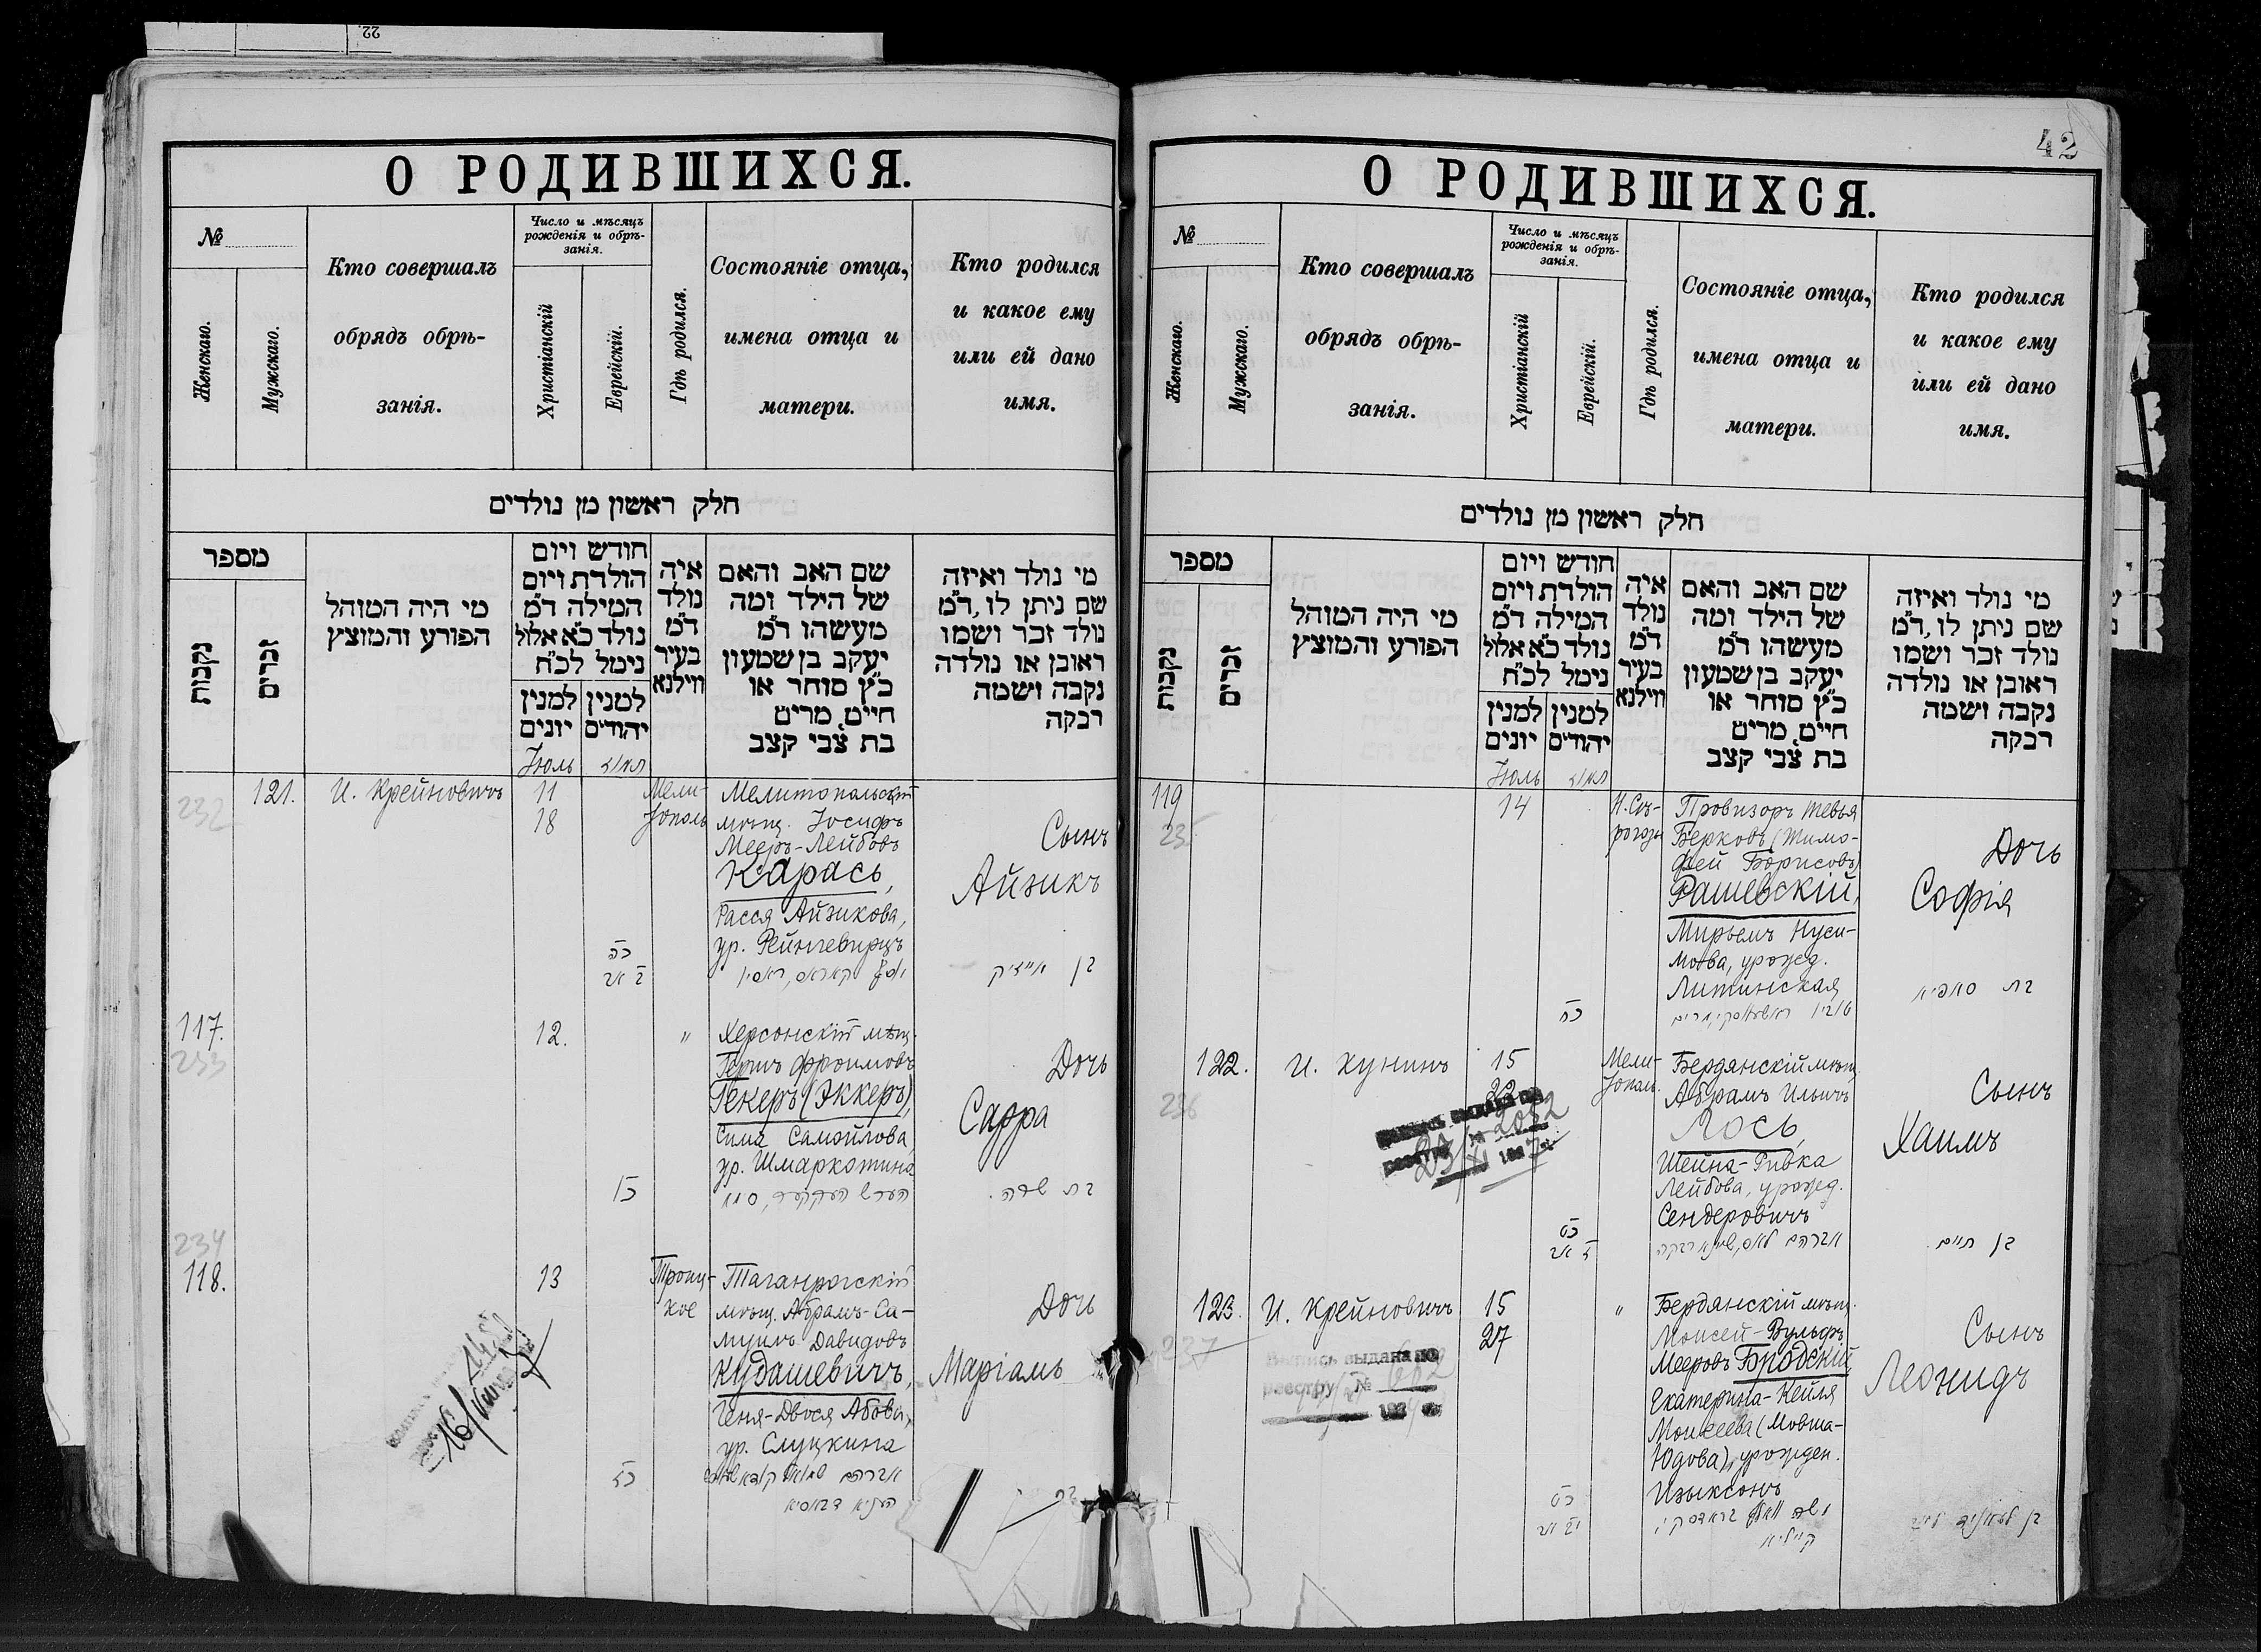 22
О РОДИВШИХСЯ.
№
Женскаго.
Мужскаго.
Кто совершалъ
обрядъ обрѣ-
занія.
Число и мѣсяцъ
рожденія и обрѣ-
занія.
Христіанскій
Еврейскій.
Гдѣ родился.
Состояніе отца,
имена отца и
матери.
Кто родился
и какое ему
или ей дано
имя.
חלק ראשון מן נולדים
מספר
נקבות
זכרים
מי היה המוהל
הפורע והמוצץ
חודש ויום
הולדת ויום
המילה ד״מ
נולד כ״א אלול
נימל לכ״ח
למנין
יונים
למנין
יהודים
איה
נולד
ד״מ
בעיר
ווילנא
שם האב והאם
של הילד ומה
מעשהו ד״מ
יעקב בן שמעון
כ״ץ סוחר או
חייט, מרים
בת צבי קצב
מי נולד ואיזה
שם ניתן לו, ד״מ
נולד זכר ושמו
ראובן או נולדה
נקבה ושמה
רבקה
Іюль
תמוז
232
121.
И. Крейновичъ
11
18
Мели-
тополь
Мелитопольскій
мѣщ. Іосифъ
Мееръ-Лейбовъ
Карась,
Расся Айзикова,
ур. Рейнгевирцъ
Сынъ
Айзикъ
כה
ב אב
יוסף קאראס, ראסי
בן אייזיק
117.
233
12.
"
Херсонскій мѣщ.
Гершъ Фроимовъ
Гекеръ (Эккеръ),
Сима Самойлова,
ур. Шмаркотина
Дочь
Сарра
כו
בת שרה.
234
118.
13
Троиц-
кое
Таганрогскій
мѣщ. Абрамъ-Са-
муилъ Давидовъ
Кудашевичъ,
Геня-Двося Абова,
ур. Слуцкина
Дочь
Маріамъ
כז
בת
16/
42
О РОДИВШИХСЯ.
№
Женскаго.
Мужскаго.
Кто совершалъ
обрядъ обрѣ-
занія.
Число и мѣсяцъ
рожденія и обрѣ-
занія.
Христіанскій
Еврейскій.
Гдѣ родился.
Состояніе отца,
имена отца и
матери.
Кто родился
и какое ему
или ей дано
имя.
חלק ראשון מן נולדים
מספר
נקבות
זכרים
מי היה המוהל
הפורע והמוצץ
חודש ויום
הולדת ויום
המילה ד״מ
נולד כ״א אלול
נימל לכ״ח
למנין
יונים
למנין
יהודים
איה
נולד
ד״מ
בעיר
ווילנא
שם האב והאם
של הילד ומה
מעשהו ד״מ
יעקב בן שמעון
כ״ץ סוחר או
חייט, מרים
בת צבי קצב
מי נולד ואיזה
שם ניתן לו, ד״מ
נולד זכר ושמו
ראובן או נולדה
נקבה ושמה
רבקה
Іюль
תמוז
119
235
14
Н. Сѣ-
рогозы
Провизоръ Тевья
Берковъ (Тимо-
фей Борисовъ)
Рашевскій,
Мирьемъ Нуси-
мова, урожд.
Литинская
Дочь
Софія
כח
בת סופיא
122.
236
И. Хунинъ
15
22
Мели-
тополь.
Бердянскій мѣщ.
Абрамъ Ильичъ
Лось,
Шейна-Ривка
Лейбова, урожд.
Сендеровичъ
Сынъ
Хаимъ
כט
ו אב
אברהם לאס, שיינא רבקה
בן חיים
2082
23/XI 1927
123.
237
И. Крейновичъ
15
27
"
Бердянскій мѣщ.
Моисей-Вульфъ
Мееровъ Бродскій
Екатерина-Кейля
Моисеева (Мовша-
Юдова), урожден.
Изыксонъ
Сынъ
Леонидъ
Выпись выдана по
реестру № 602
כט
יא אב
משה וואלף בראדסקי,
קיילא